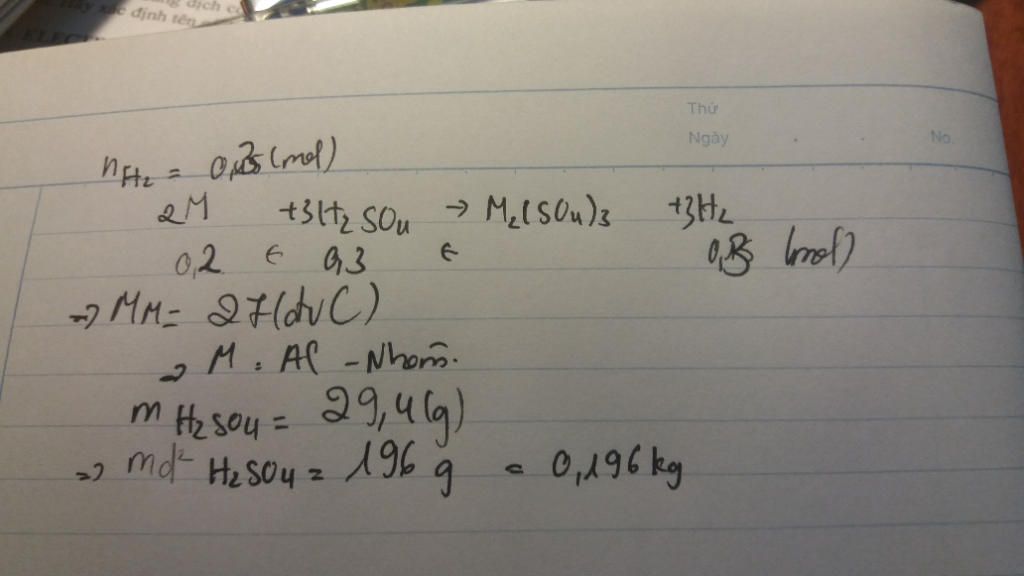 định tên
Thứ
Ngày . . No.
nH2 = (mol)
2M +3H2SO4 → M2(SO4)3 +3H2
0,2 ← 0,3 ← (mol)
=> MM = 27(đvC)
=> M : Al - Nhôm.
m H2SO4 = 29,4(g)
=> md² H2SO4 = 196 g = 0,196 kg